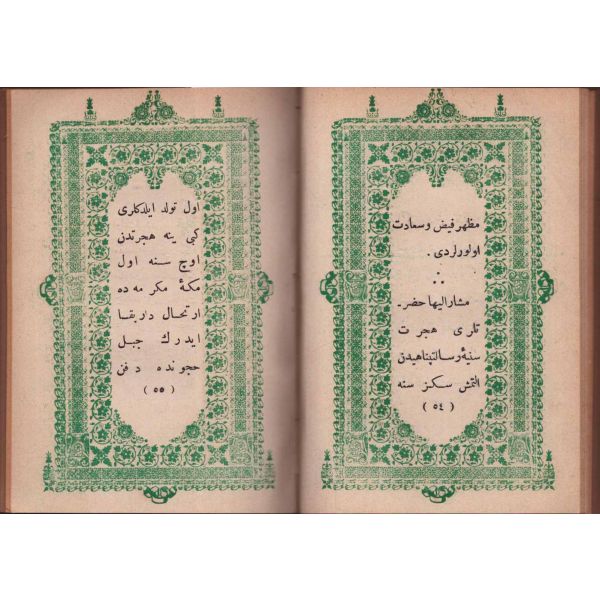 مظهر فيض وسعادت
اولورلردى .
∴
مشاراليها حضر ـ
تلرى هجرت
سنيهٔ رسالتپناهيدن
التمش سكز سنه
( ٥٤ )
اول تولد ايلدكلرى
كبى ينه هجرتدن
اوچ سنه اول
مكهٔ مكرمه ده
ارتحال داربقا
ايدرك جبل
حجونده دفن
( ٥٥ )